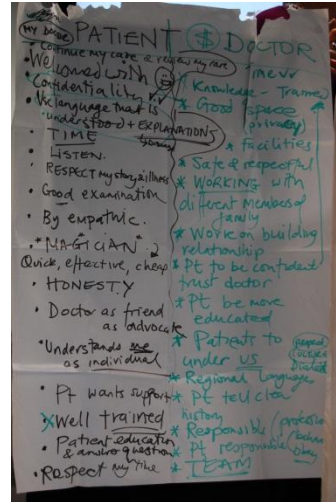 MY DOCTOR PATIENT $ DOCTOR
• Continue my care & review my care
• Welcomed with
• Confidentiality
• Use language that is
understood + EXPLANATIONS
• TIME
• LISTEN.
• RESPECT my story & illness
• Good examination
• By empathic.
• *MAGICIAN*
Quick, effective, cheap
• HONESTY
• Doctor as friend
as advocate
• Understands me
as individual
• Pt wants support
* Well trained
• Patient education
& answer question
• Respect my time
Time
* Knowledge - Trained
* Good space
(privacy)
* Facilities
* Safe & respectful
* WORKING with
different Members of
family
* Work on building
relationship
* Pt to be confident
trust doctor
* Pt be more
educated
* Patients to
under US
* Regional Languages
* Pt tell clear
history
* Responsible
* Pt responsible obey
* TEAM